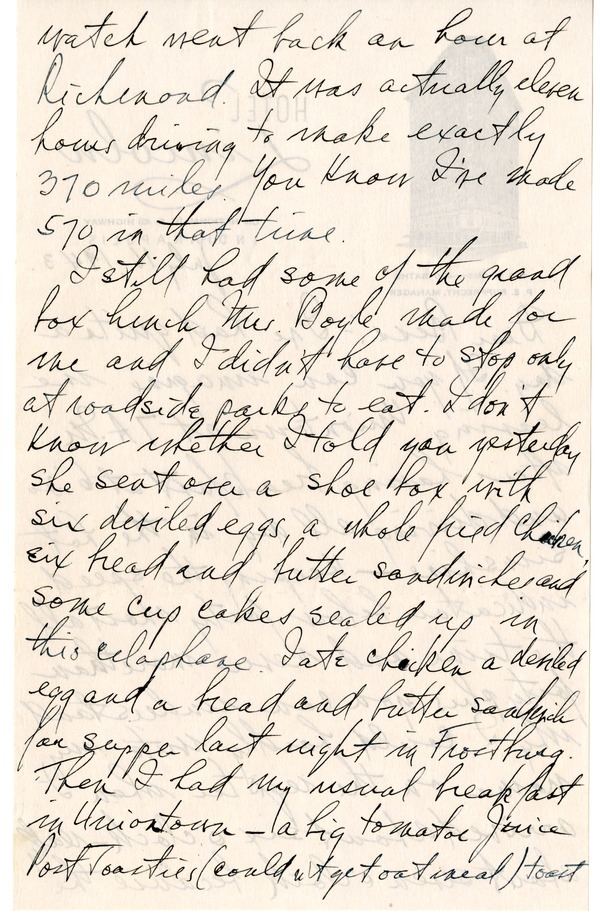 watch went back an hour at
Richmond. It was actually eleven
hours driving to make exactly
370 miles. You know I've made
570 in that time.
I still had some of the grand
box lunch Mrs. Boyle made for
me and I didn't have to stop only
at roadside parks to eat. I don't
know whether I told you yesterday
she sent over a shoe box with
six deviled eggs, a whole fried chicken,
six bread and butter sandwiches and
some cup cakes sealed up in
this celaphane. I ate chicken a deviled
egg and a bread and butter sandwich
for supper last night in Frostburg.
Then I had my usual breakfast
in Uniontown - a big tomatoe juice
Post Toasties (couldn't get oat meal) toast